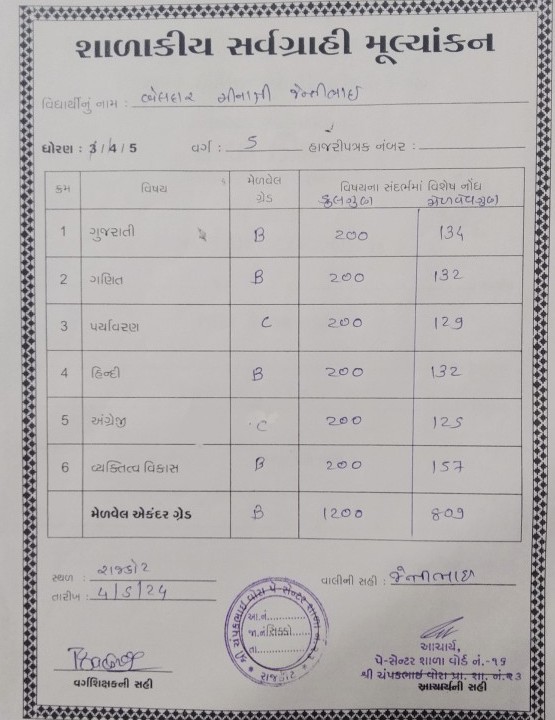 શાળાકીય સર્વગ્રાહી મૂલ્યાંકન
વિદ્યાર્થીનું નામ : જેન્તીભાઈ
ધોરણ : 3/4/5 વર્ગ : 5 હાજરીપત્રક નંબર :
ક્રમ વિષય મેળવેલ ગ્રેડ વિષયના સંદર્ભમાં વિશેષ નોંધ
કુલગુણ મેળવેલગુણ
1 ગુજરાતી B 200 134
2 ગણિત B 200 132
3 પર્યાવરણ C 200 129
4 હિન્દી B 200 132
5 અંગ્રેજી C 200 125
6 વ્યક્તિત્વ વિકાસ B 200 157
મેળવેલ એકંદર ગ્રેડ B 1200 809
સ્થળ : રાજકોટ
તારીખ : 4/5/24
વાલીની સહી : જેન્તીભાઇ
શ્રી ચંપકભાઈ વોરા પે-સેન્ટર શાળા નં. ૧૩
આ.નં.
જા.નં સિક્કો
તા.
રાજકોટ
વર્ગશિક્ષકની સહી
આચાર્ય,
પે-સેન્ટર શાળા વોર્ડ નં.-૧૬
શ્રી ચંપકભાઈ વોરા પ્રા. શા. નં.૧૩
આચાર્યની સહી